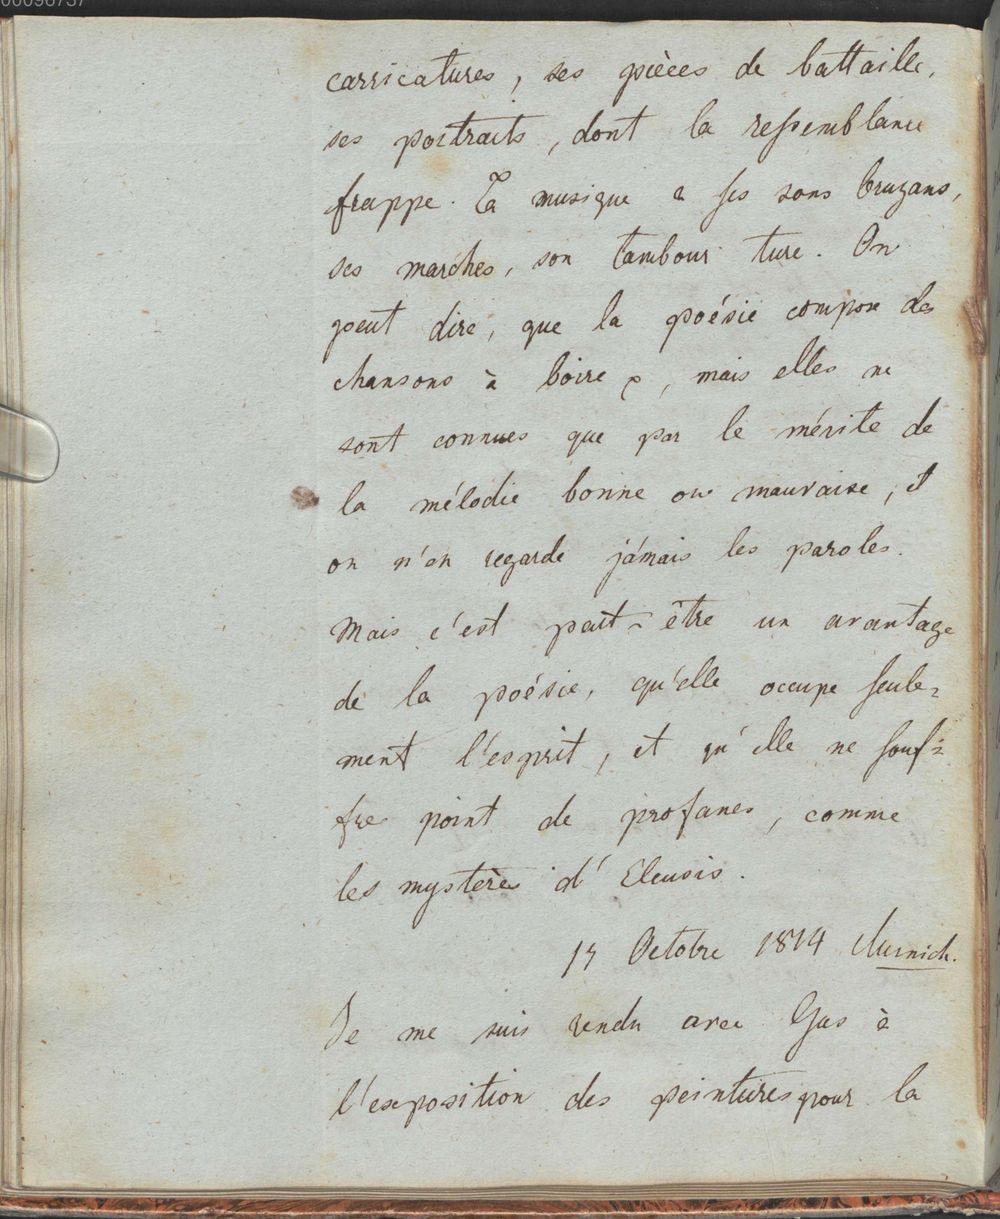 00096737
carricatures, ses pièces de battaille,
ses portraits, dont la ressemblance
frappe. La musique a ses sons bruyans,
ses marches, son tambour turc. On
peut dire, que la poésie compose des
chansons à boire, mais elles ne
sont connues que par le mérite de
la mélodie bonne ou mauvaise, et
on n'en regarde jámais les paroles.
Mais c'est peut-être un avantage
de la poésie, qu'elle occupe seule=
ment l'esprit, et qu'elle ne souf=
fre point de profanes, comme
les mystères d'Eleusis.
17 Octobre 1814 Munich.
Je me suis rendu avec Gas à
l'exposition des peintures pour la